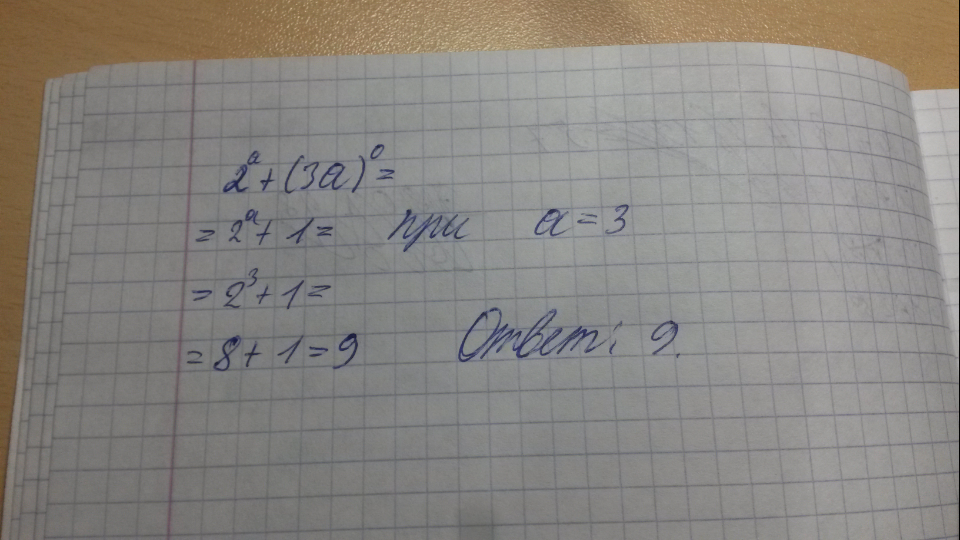 2ᵃ + (3a)⁰ =
= 2ᵃ + 1 = при a = 3
= 2³ + 1 =
= 8 + 1 = 9 Ответ: 9.